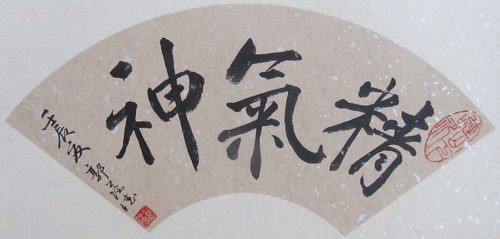 精氣神
壬辰夏 郭